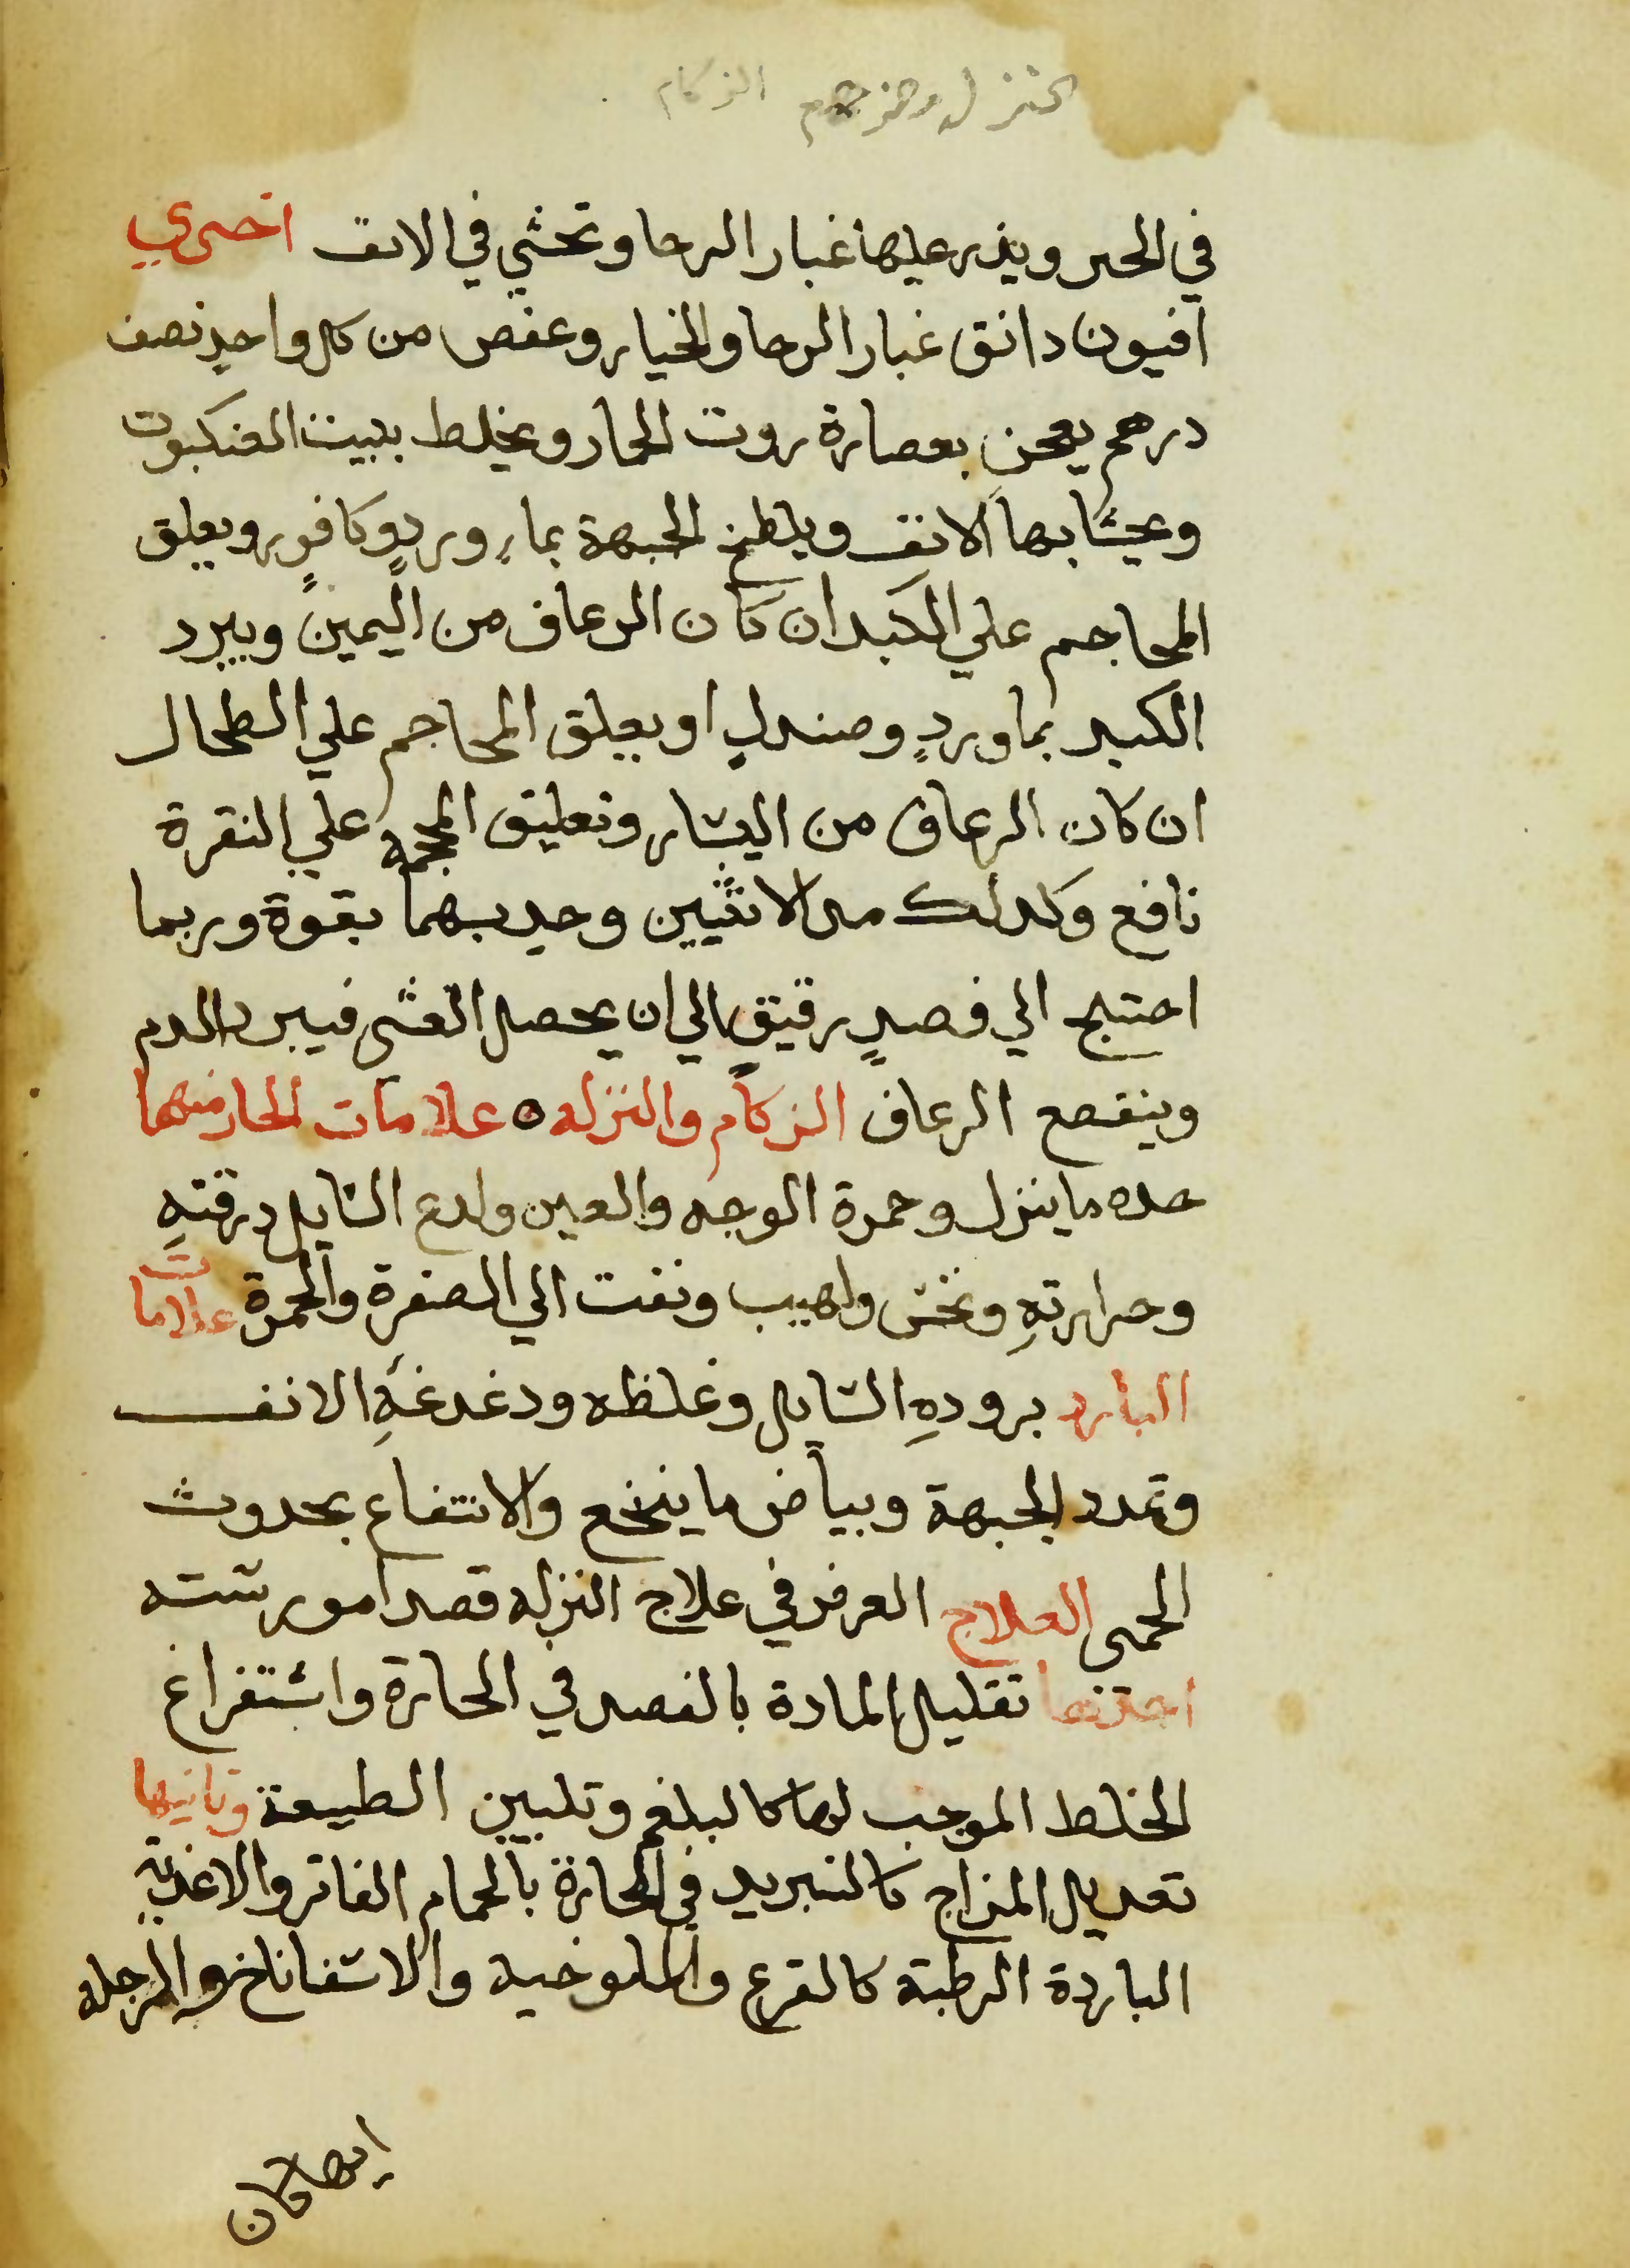 الزكام
في الحبر ويذر عليها غبار الرحا وتحشي في الانف اخري
افيون دانق غبار الرحا والخيار وعفص من كل واحدٍ نصف
درهم يعجن بعصارة روث الحمار ويخلط ببيت العنكبوت
ويحشا بها الانف ويلطخ الجبهة بماءِ وردٍ وكافورٍ ويعلق
المحاجم علي الكبد ان كان الرعاف من اليمين ويبرد
الكبد بماوردٍ وصندلٍ او يعلق المحاجم علي الطحال
ان كان الرعاف من اليسار وتعليق المحجمة علي النقرة
نافع وكذلك مس الانثيين وجذبهما بقوة وربما
احتيج الي فصدٍ رقيقٍ الي ان يحصل الغشي فيبرد الدم
وينقطع الرعاف الزكام والنزله ٥ علامات الحار منهما
حده ما ينزل وحمرة الوجه والعين ولدع السايل ورقتهِ
وحرارتهِ ونخس ولهيب ونفث الي الصفرة والحمرة علامات
البارد برودهِ السايل وغلظه ودغدغةِ الانف
وتمدد الجبهة وبياض ما ينخع والانتفاع بحدوث
الحمى العلاج الغرض في علاج النزله قصد امور سته
احدها تقليل المادة بالفصد في الحارة واستفراغ
الخلط الموجب لها كالبلغم وتليين الطبيعة وثانيها
تعديل المزاج كالتبريد في الحارة بالحمام الفاتر والاغذية
الباردة الرطبة كالقرع والملوخيه والاسفاناخ والرجله